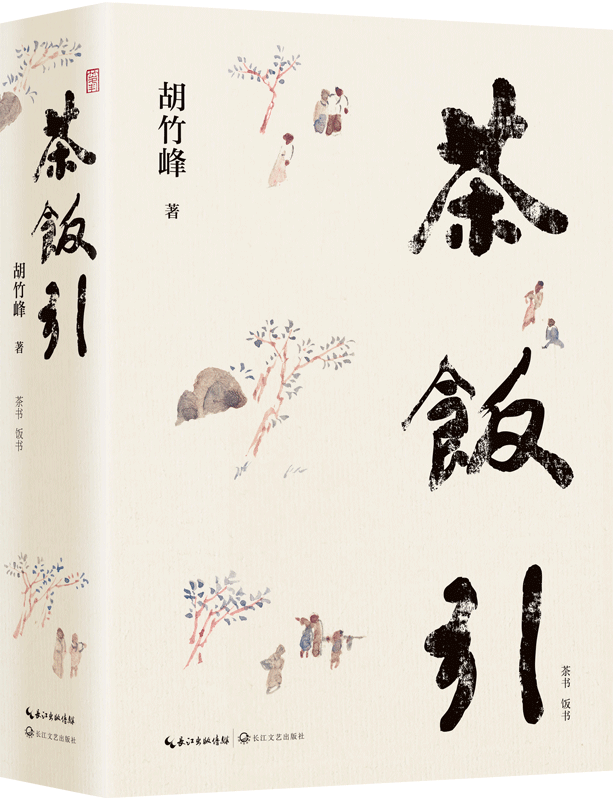 茶飯引
胡竹峰
著
茶书 饭书
长江出版传媒
长江文艺出版社
茶飯引
胡竹峰
著
茶书 饭书
长江出版传媒
长江文艺出版社